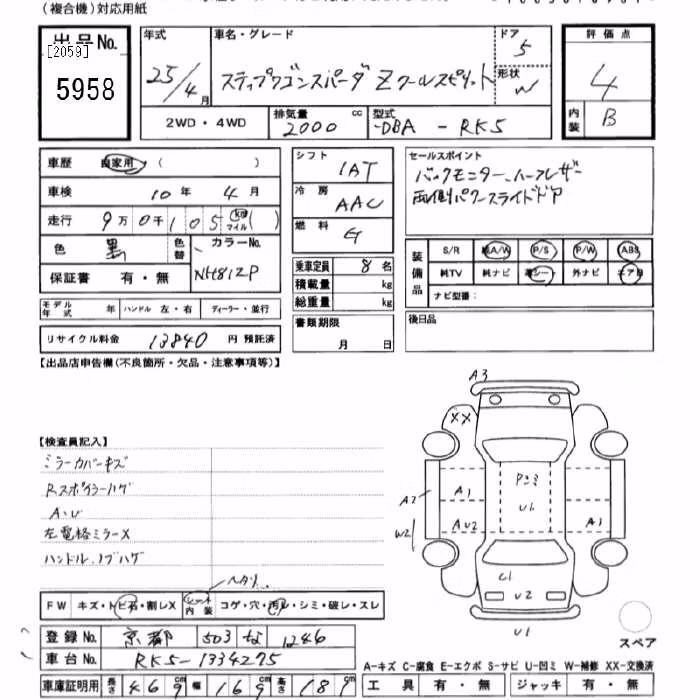 (複合機)対応用紙
出品No.
[2059]
5958
年式
25/4月
車名・グレード
ステップワゴンスパーダ Zクールスピリット
ドア
5
形状
W
評価点
4
内装
B
2WD・4WD
排気量
2000
cc
型式
DBA - RK5
車歴 自家用 ( )
車検 10年 4月
走行 9万0千105 km マイル ( )
色 黒 色替 カラーNo. NH812P
保証書 有・無
モデル年式 年 ハンドル 左・右 ディーラー・並行
リサイクル料金 13840 円 預託済
シフト
IAT
冷房
AAC
燃料
G
乗車定員 8 名
積載量 kg
総重量 kg
書類期限
月 日
セールスポイント
バックモニター、ハーフレザー
両側パワースライドドア
装備品
S/R 純A/W P/S P/W ABS
純TV 純ナビ 革シート 外ナビ エアB
ナビ型番:
後日品
【出品店申告欄(不良箇所・欠品・注意事項等)】
【検査員記入】
ミラーカバーキズ
Rスポイラーハゲ
A・U
左電格ミラーX
ハンドル、ノブハゲ
FW キズ・トビ石・割レX
シート内装 コゲ・穴・汚レ・シミ・破レ・スレ
ヘタリ
登録No. 京都 503 な 1246
車台No. RK5-1334275
車庫証明用 長さ 469 幅 169 高さ 181
A3
XX
Pシミ
U1
A2
A1
W2
AU2
A1
C1
U2
U1
スペア
A-キズ C-腐食 E-エクボ S-サビ U-凹ミ W-補修 XX-交換済
工具 有・無 ジャッキ 有・無